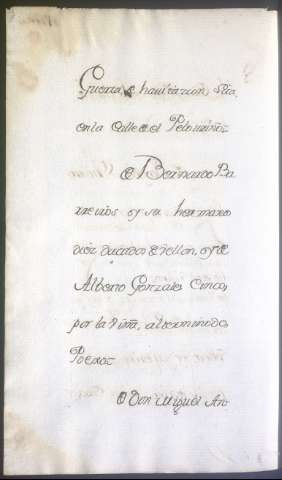 Guerta, e havitazion, Sita
en la Calle de el Pelourinoz
de Bernardo Ba
rreiros y su hermano
diez ducados de vellon, y de
Alberto Gonzales Cinco,
por la Viña, al termino do,
Poexoz
de Don Miguel Ant